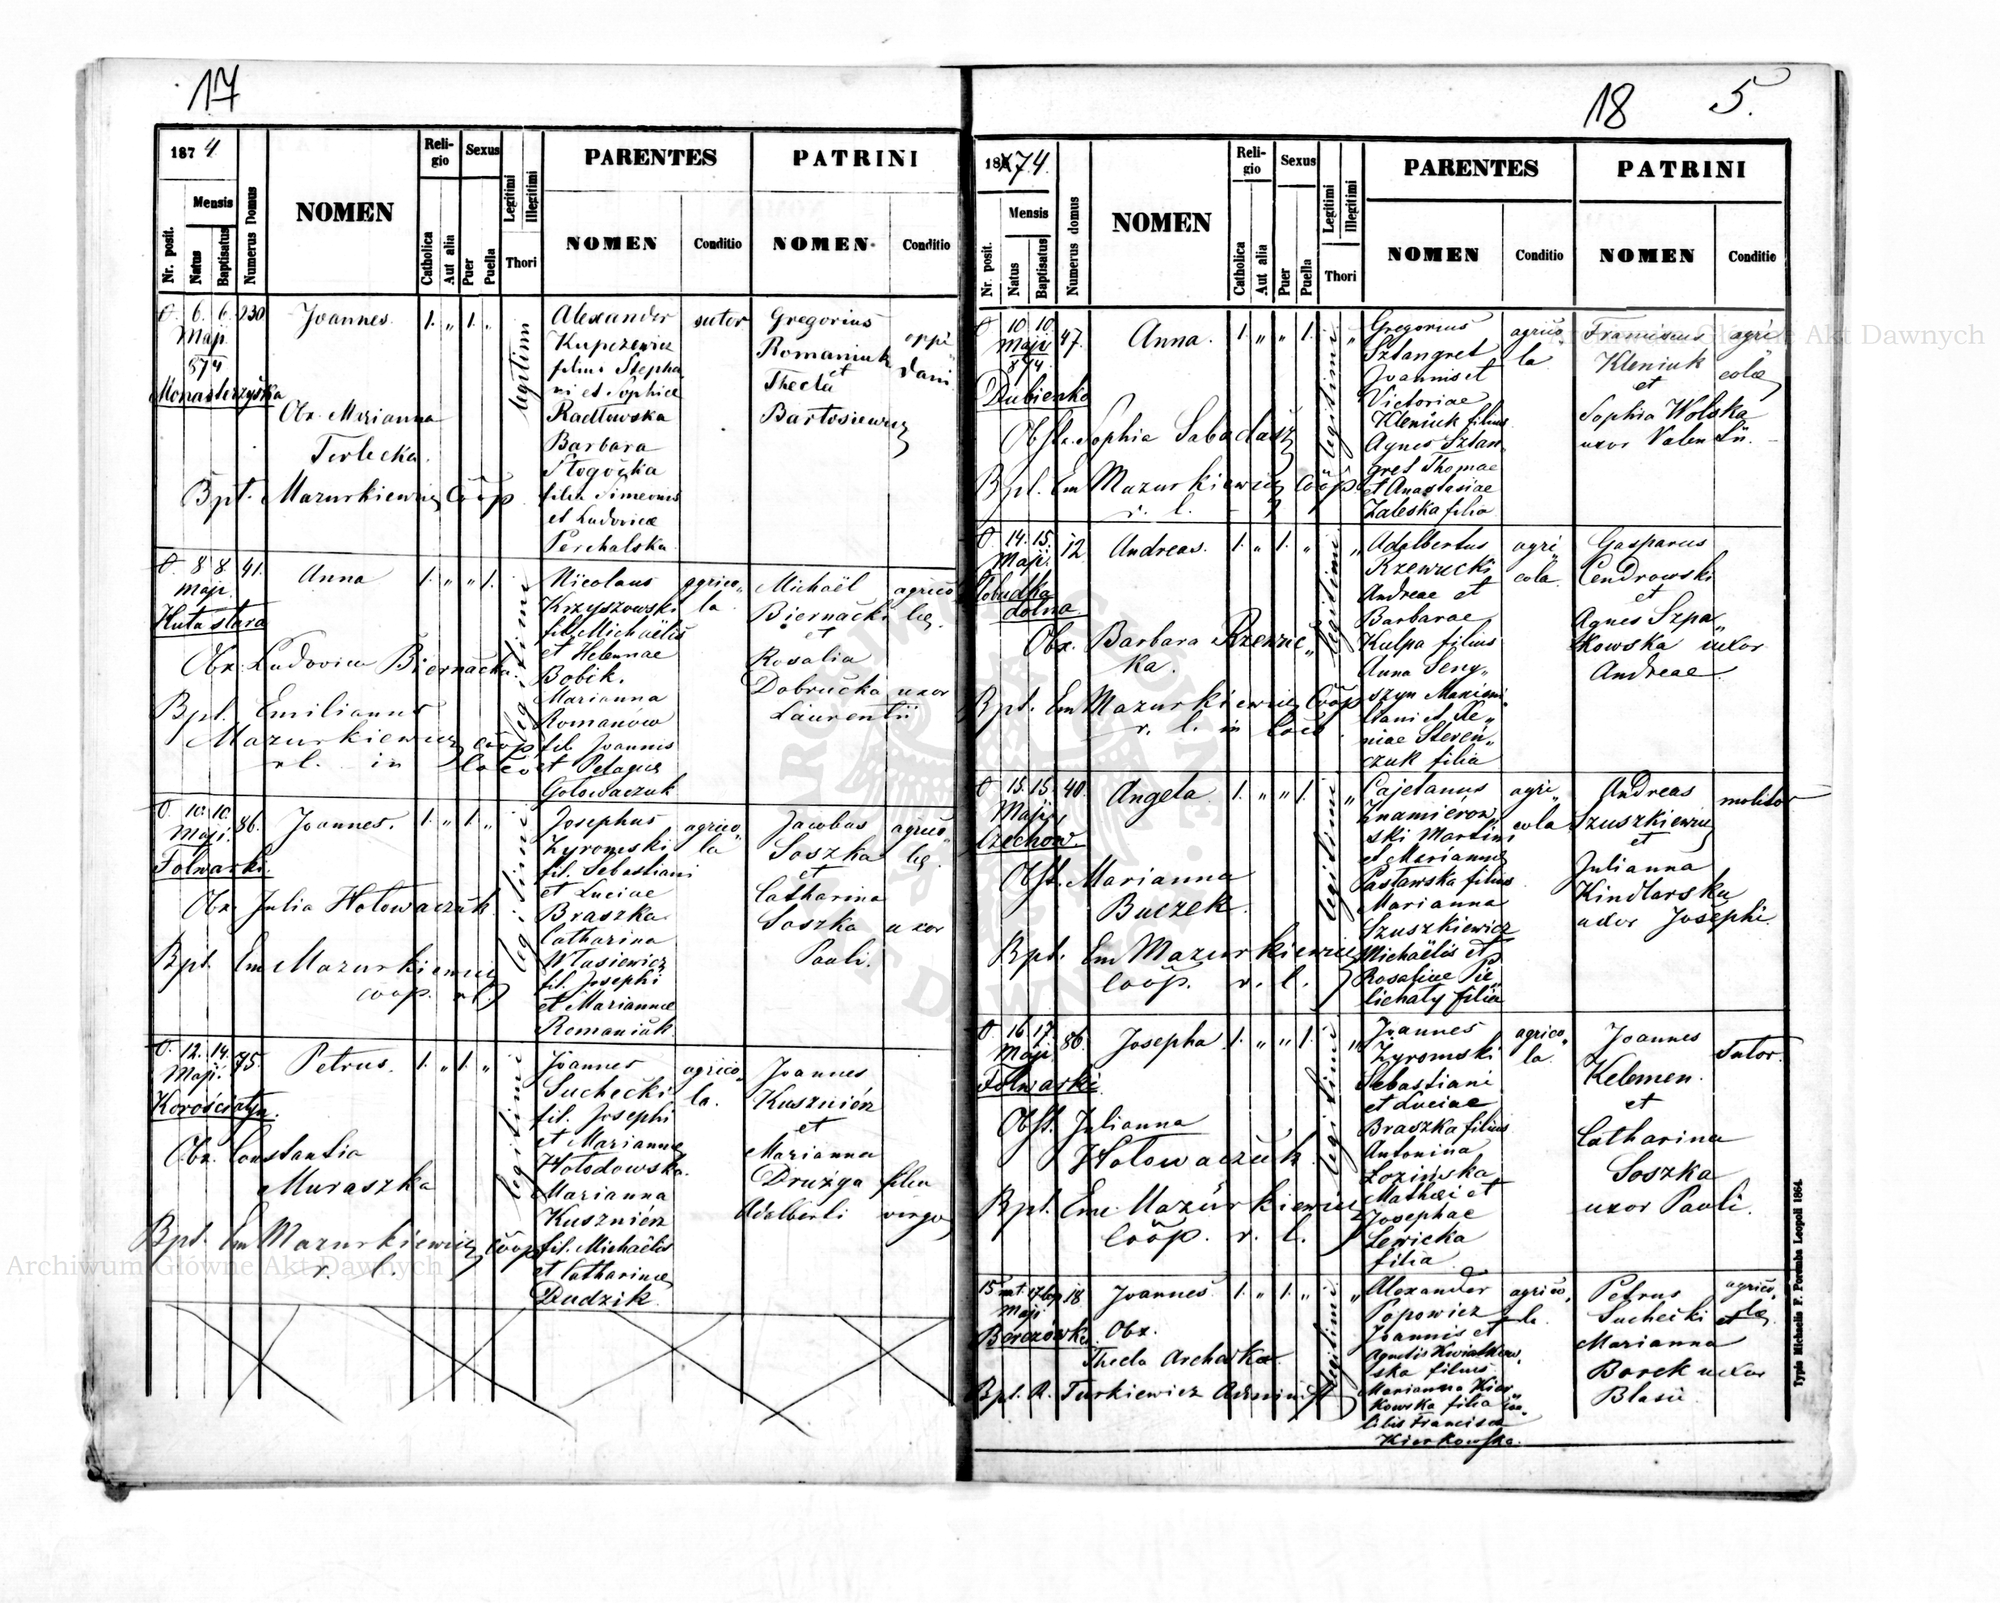 17
1874
Nr. posit.
Mensis
Natus
Baptisatus
Numerus Domus
NOMEN
Religio
Catholica
Aut alia
Sexus
Puer
Puella
Legitimi
Illegitimi
Thori
PARENTES
NOMEN
Conditio
PATRINI
NOMEN
Conditio
6. 6. 230
Maji
874
Monasterzyska
Joannes.
Obx. Marianna
Terlecka.
Bpt. Mazurkiewicz Coop.
1. „ 1. „
legitim
Alexander
Kupczewicz
filius Stepha
ni et Sophiae
Radlowska
Barbara
filia Simeonis
et Ludovicae
Perchalska
sutor
Gregorius
Romaniuk
et
Thecla
Bartosiewicz
oppi
dani
8. 8. 41.
Maji.
Huta stara
Anna
Obx. Ludovica Biernacka.
Bpt. Emilianus
Mazurkiewicz coop
rl. in loco
1. „ „ 1.
legitimi
Nicolaus
Krzyszowski
fil. Michaëlis
et Helennae
Bobik.
Marianna
Romanów
fil. Joannis
et Pelagiae
Gołowaczuk
agrico„
la.
Michaël
Biernacki
et
Rosalia
Dobrucka uxor
Laurentii
agrico
lae.
10. 10. 86.
Maji.
Folwarki.
Joannes.
Obx. Julia Hołowaczuk.
Bpt. Em Mazurkiewicz
coop. rl.
1. „ 1. „
legitimi
Josephus
Zyromski
fil. Sebastiani
et Luciae
Braszka
Catharina
Wlasiewicz
fil. Josephi
et Mariannae
Romaniuk
agrico„
la
Jacobus
Soszka
et
Catharina
Soszka uxor
Pauli.
agrico„
lae.
12. 14. 75.
Maji.
Korościatyn.
Petrus.
Obx. Constantia
Muraszka
Bpt. Em Mazurkiewicz Coop
r. l.
1. „ 1. „
legitimi
Joannes
Suchecki
fil. Josephi
et Mariannae
Hołodowska.
Marianna
Kusznierz
fil. Michaëlis
et Catharinae
Dudzik.
agrico„
la.
Joannes
Kusznierz
et
Marianna
Drużga filia
Adalberti virgo
18 5.
1874.
Nr. posit.
Mensis
Natus
Baptisatus
Numerus domus
NOMEN
Religio
Catholica
Aut alia
Sexus
Puer
Puella
Legitimi
Illegitimi
Thori
PARENTES
NOMEN
Conditio
PATRINI
NOMEN
Conditio
10. 10. 47.
Maji
874.
Dubienko
Anna.
Obst. Sophia Sabadasz
Bpt. Em Mazurkiewicz Coop.
r. l.
1. „ „ 1.
legitimi „
Gregorius
Sztangret
Joannis et
Victoriae
Kleniuk filius
Agnes Sztan„
gret Thomae
et Anastasiae
Zaleska filia
agrico
la
Franciscus
Kleniuk
et
Sophia Wolska
uxor Valentii.
agri
colae
14. 15. 12
Maji.
Słobudka
dolna.
Andreas.
Obx. Barbara Rzewuc„
ka.
Bpt. Em Mazurkiewicz Coop
r. l. in loco.
1. „ 1. „
legitimi „
Adalbertus
Rzewucki
Andreae et
Barbarae
Kulpa filius
Anna Seny„
szyn Maximi
liani et Xe„
niae Steren„
czuk filia
agri„
cola.
Gasparus
Cendrowski
et
Agnes Szpa„
kowska uxor
Andreae
15. 15. 40.
Maji
Czechow.
Angela.
Obst. Marianna
Buczek.
Bpt. Em Mazurkiewicz
Coop. r. l.
1. „ „ 1.
legitimi „
Cajetanus
Znamierow
ski Martini
et Mariannae
Pastawska filius
Marianna
Szuszkiewicz
Michaëlis et
Rosaliae Pie„
lichaty filia
agri„
cola.
Andreas
Szuszkiewicz
et
Julianna
Kindlarska
uxor Josephi.
molitor
16. 17. 86.
Maji
Folwarki
Josepha.
Obst. Julianna
Hołowaczuk.
Bpt. Em. Mazurkiewicz
Coop. r. l.
1. „ „ 1.
legitimi „
Joannes
Zyromski
Sebastiani
et Luciae
Braszka filius
Antonina
Łozińska
Mathaei et
Josephae
Lewicka
filia.
agrico„
la.
Joannes
Kelemen.
et
Catharina
Soszka
uxor Pauli.
Sutor.
15 nat. 17 bap 18
Maji
Berezówka
Joannes.
Obx.
Thecla Archacka.
Bpt. A. Turkiewicz Administ.
1. „ 1. „
legitimi „
Alexander
Popowicz
Joannis et
Agnetis Kwiatkow„
ska filius
Marianna Kier„
kowska filia cae„
libis Francisca
Kierkowska.
agrico„
la.
Petrus
Suchecki et
Marianna
Borek uxor
Blasii.
agrico„
lae
Typis Michaelis F. Poremba Leopoli 1864.
Archiwum Główne Akt Dawnych
Archiwum Główne Akt Dawnych
ARCHIWUM GŁÓWNE AKT DAWNYCH